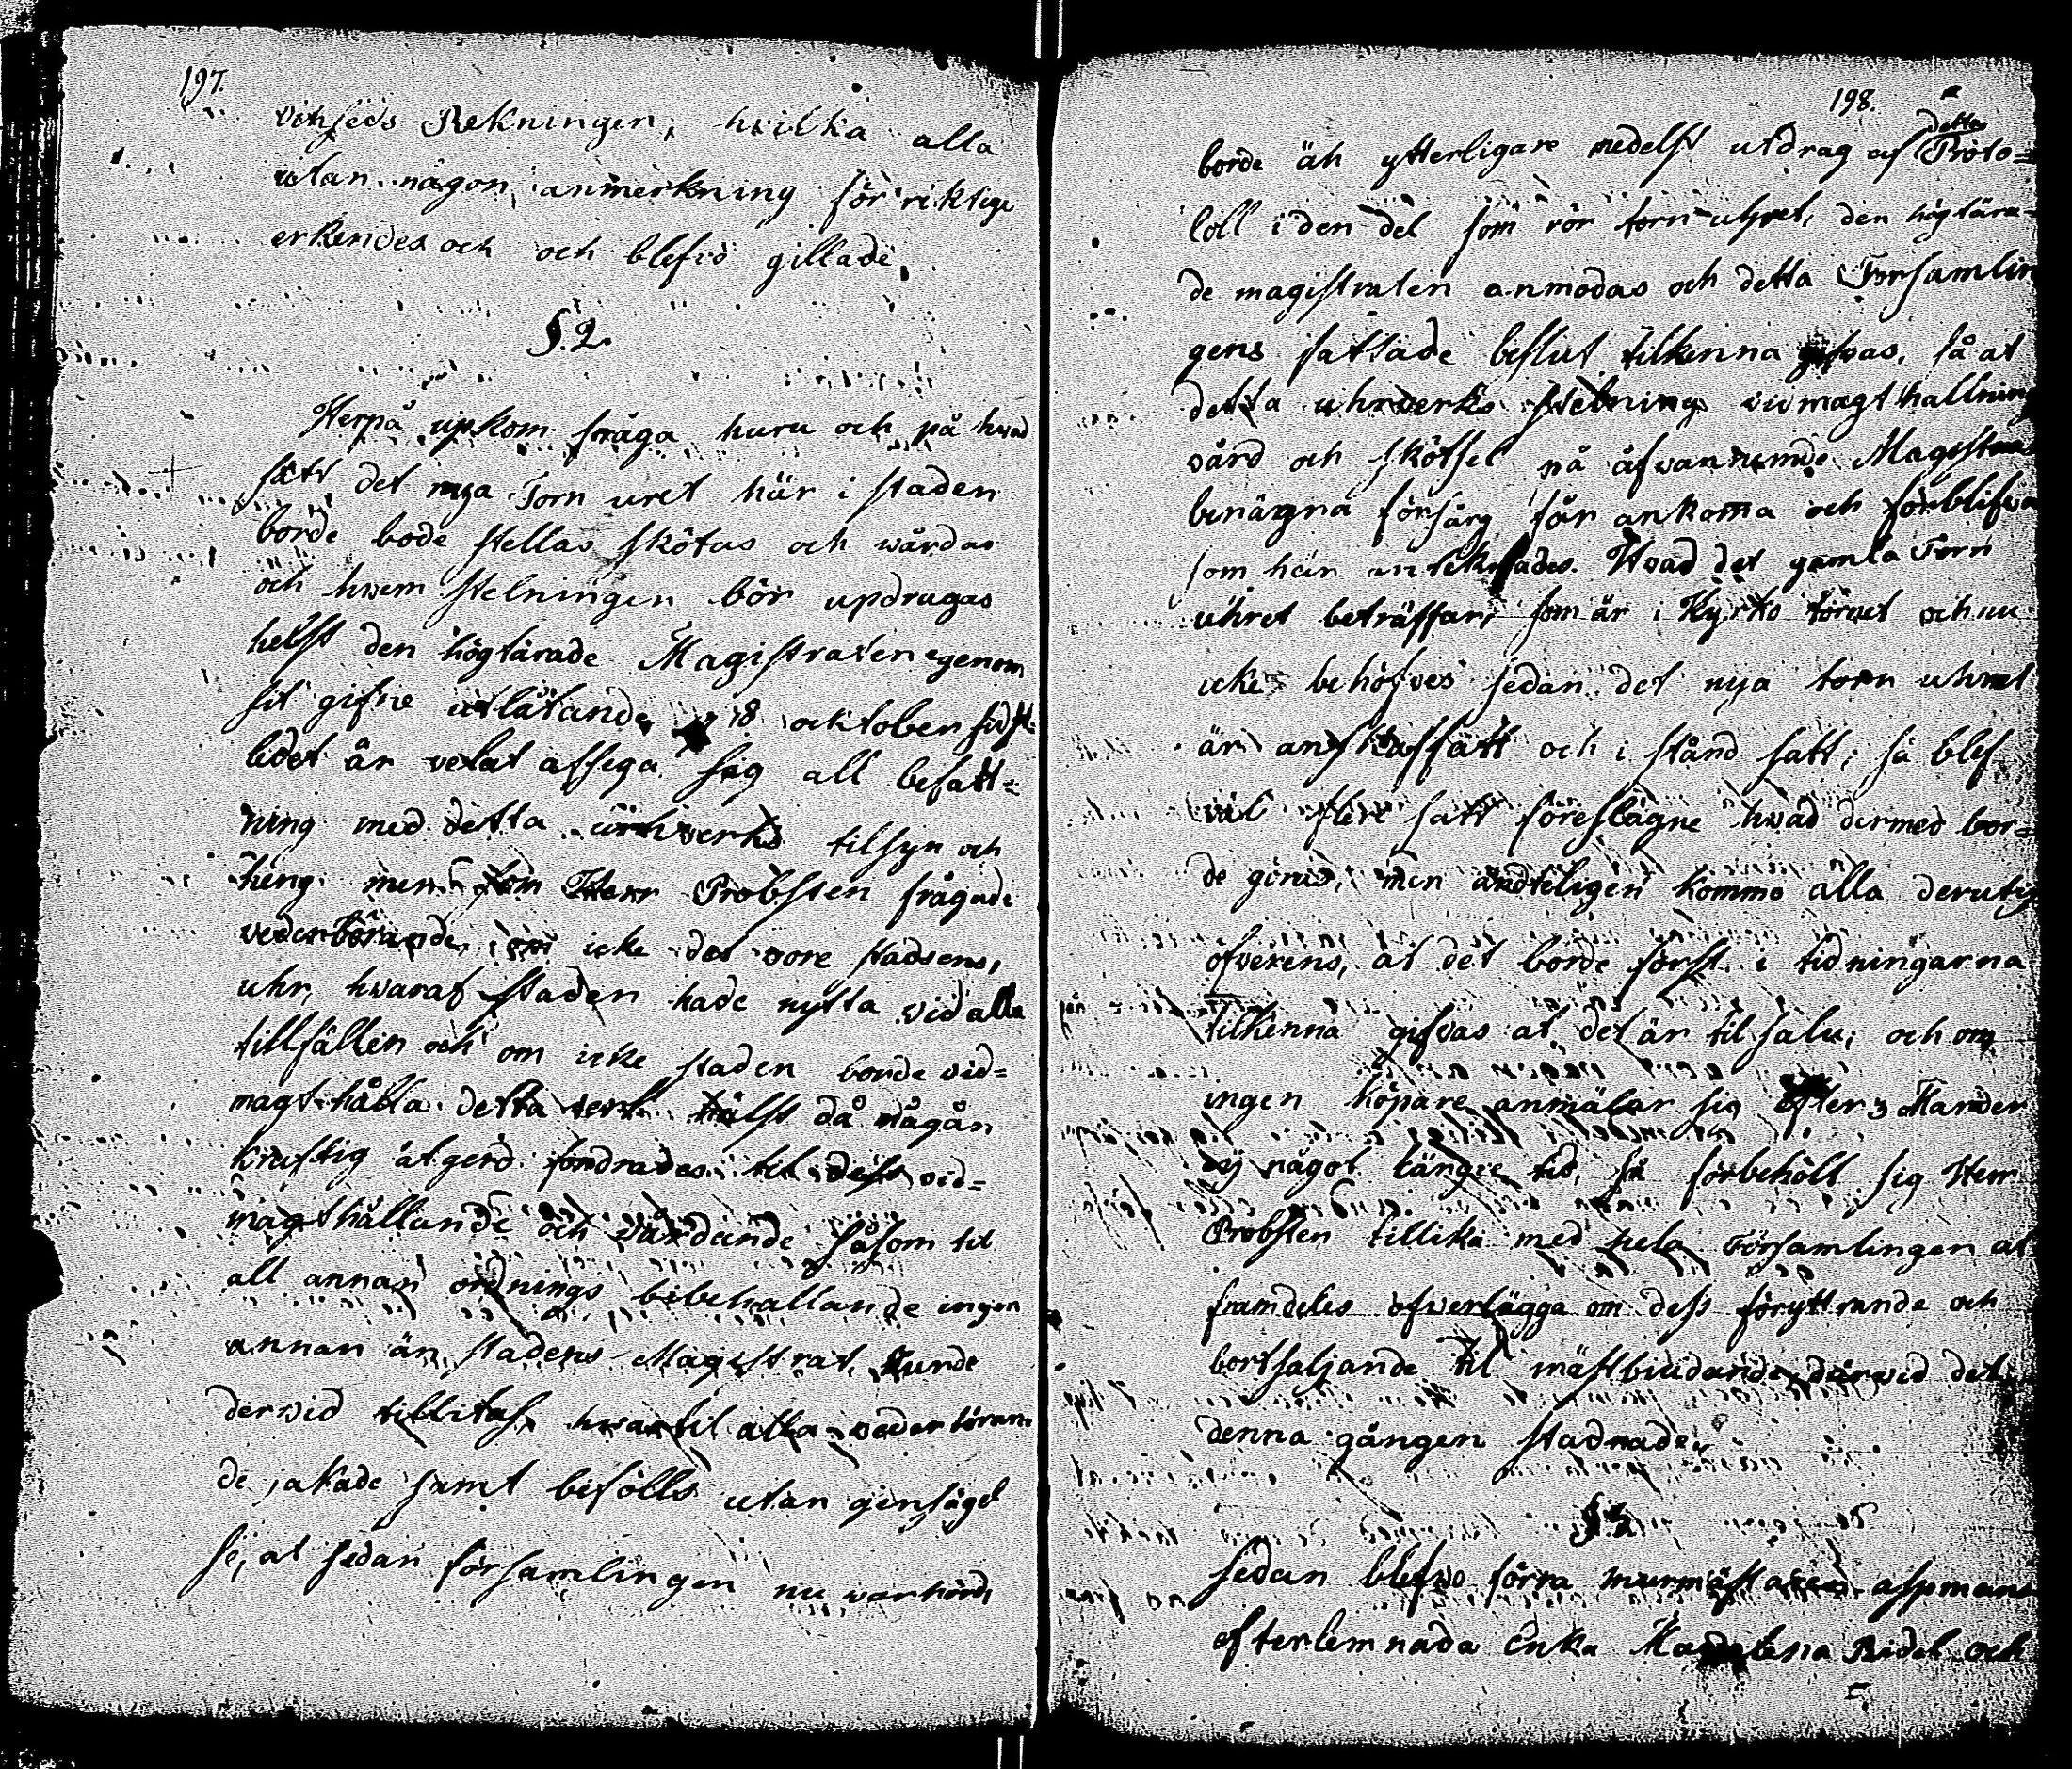 197.
Rekningen, hvilka alla
utan någon anmerkning för riktige
erkendes och och blefvo gillade.
§. 2.
Herpå upkom fråga huru och på hvad
sätt det nya Torn uret här i staden
borde bode stellas skötas och wårdas
och hwem stelningen bör updragas
helst den högtärade Magistraten egenom
sit gifne utlåtande 18 ocktober sidst
lidet år velat afsega sig all befatt=
ning med detta urhverks tilsyn och
men som Herr Probsten frågade
vederbörande, om icke det vore stadsens,
uhr, hwaraf staden hade nytta vid alla
tillfällen och om icke staden borde vid=
magt hålla detta verk hälst då någån
kraftig åtgerd fordrades til dess vid=
magthållande och vårdande såsom til
all annan ordnings bibehållande ingen
annan än stadens Magistrat kunde
dervid tillitas, hwartil alla vederböran
de jakade samt befölls utan gensägel
se, at sedan församlingen nu var hörd,
198.
detta
borde äh ytterligare medelst utdrag af Proto=
coll i den del som rör torn-uhret, den högtära=
de magistraten anmodas och detta Församlin
gens fattade beslut tilkenna gifvas, så at
detta uhrverks stelning vid magt hallning
vård och skötsel på åfvannemde Magistrats
benägna försårg får ankoma och förblifva
som här antecknades. Hvad det gamla Torn
uhret beträffar, som är i Kyrko tornet och nu
icke behöfves sedan det nya torn uhret
är anskaffatt och i stånd satt; så blef
väl flere satt föreslagne hwad dermed bor=
de göras, men ändteligen kommo alla deruti
öfverens, at det borde först i tidningarna
tilkenna gifvas at det är til salu; och om
ingen köpare anmälar sig efter 3 Manader
ej något längre tid, så förbehölt sig Herr
Probsten tillika med hela Församlingen at
framdeles öfverlägga om dess föryttrande och
bortsaljande til mästbiudande, därvid det
denna gången stadnade.
§ 3.
Sedan blefwo förra murmästaren aspmans
efterlemnada Enka Madalena Ridel och